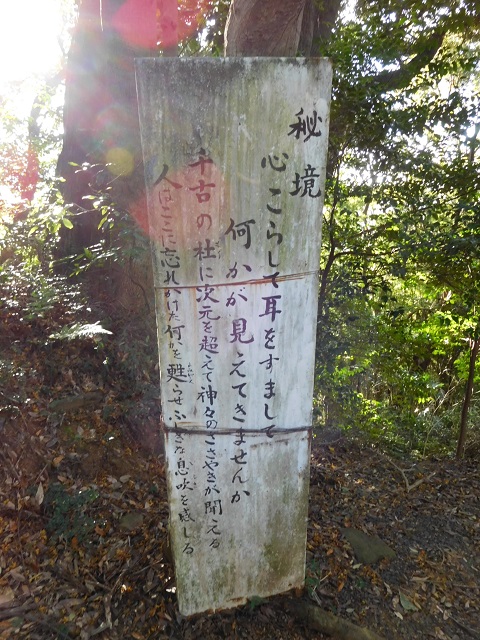 秘境
心こらして耳をすまして
何かが見えてきませんか
千古の杜に次元を超えて神々のささやきが聞える
人はここに忘れかけた何かを甦らせふしぎな息吹を感じる